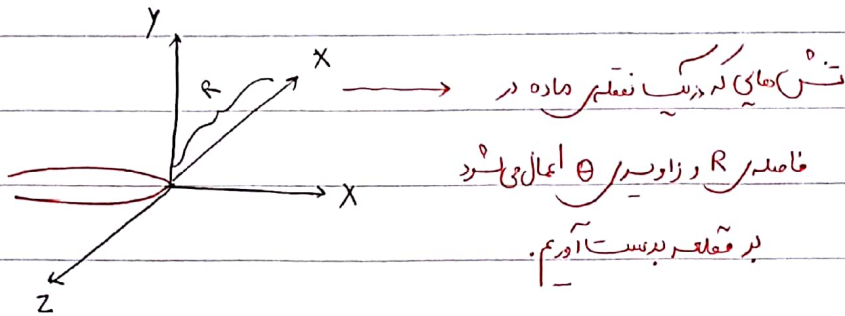 Y
R
X
تنش‌هایی که در یک نقطه‌ی ماده در
فاصله‌ی R و زاویه‌ی θ اعمال می‌شود
X
بر قطعه بدست آوریم.
Z